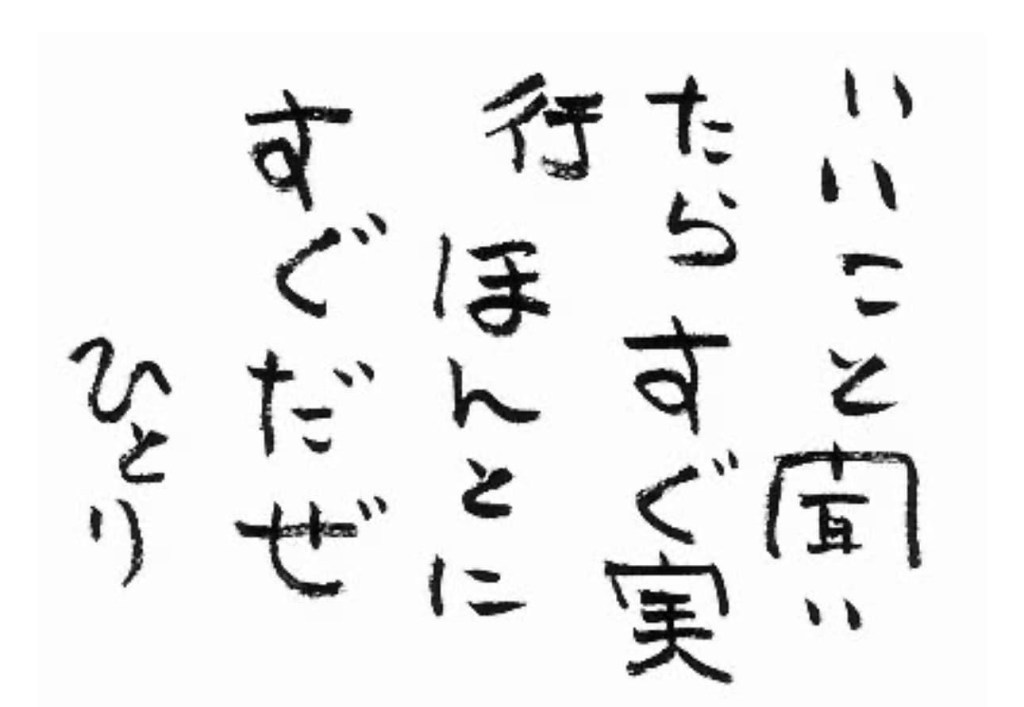 いいこと聞い
たらすぐ実
行
ほんとに
すぐだぜ
ひとり